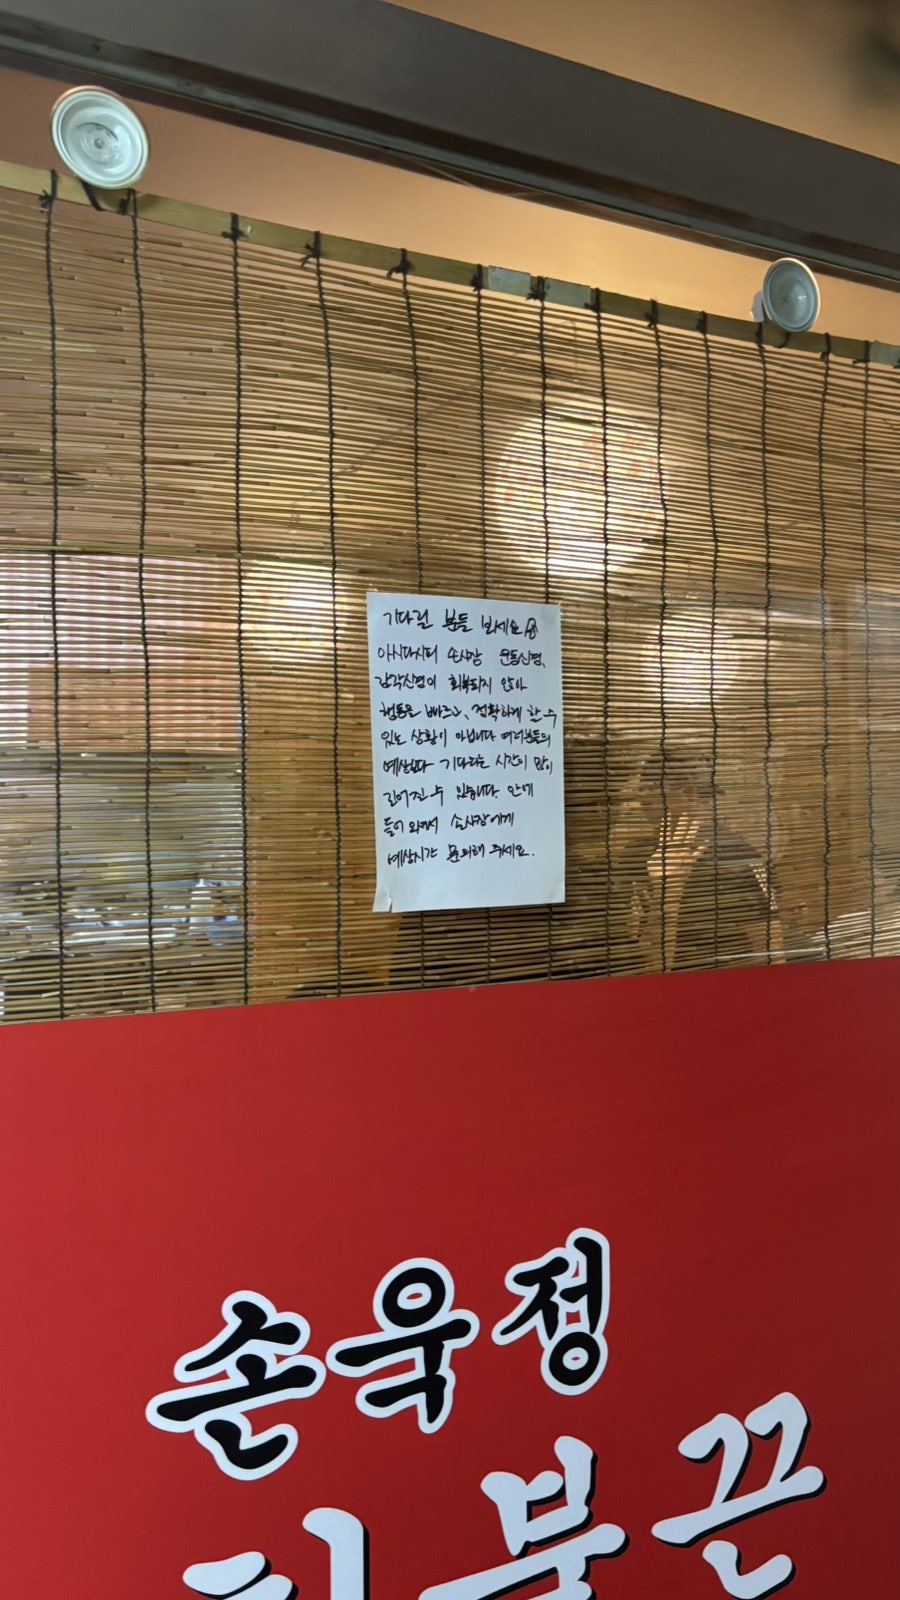 기다릴 분들 보세요
아시다시피 손사장 운동신경,
감각신경이 회복되지 않아
행동은 빠르고, 정확하게 할 수
있는 상황이 아닙니다 여러분들의
예상보다 기다리는 시간이 많이
길어질 수 있습니다. 안에
들어 와서 손사장에게
예상시간 문의해 주세요.
손욱정
불끈